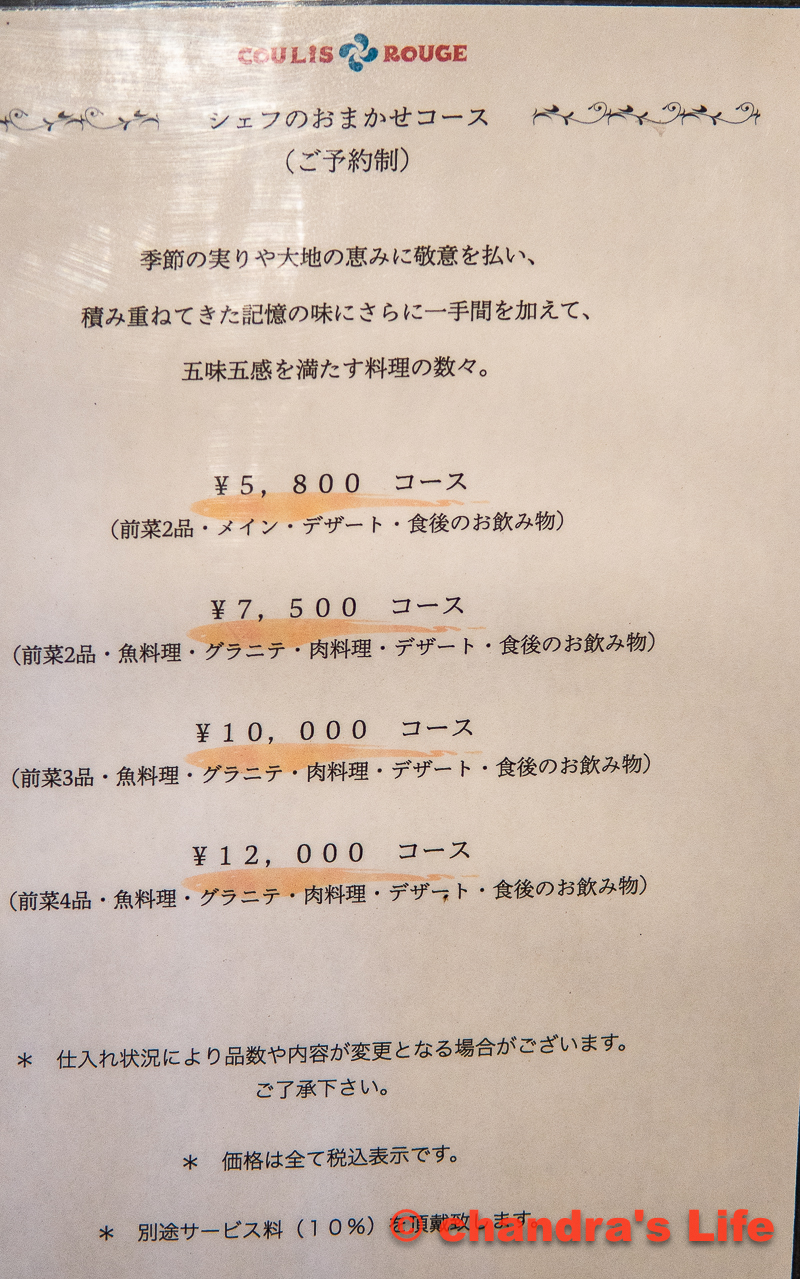 COULIS ROUGE
シェフのおまかせコース
（ご予約制）
季節の実りや大地の恵みに敬意を払い、
積み重ねてきた記憶の味にさらに一手間を加えて、
五味五感を満たす料理の数々。
￥５，８００　コース
（前菜2品・メイン・デザート・食後のお飲み物）
￥７，５００　コース
（前菜2品・魚料理・グラニテ・肉料理・デザート・食後のお飲み物）
￥１０，０００　コース
（前菜3品・魚料理・グラニテ・肉料理・デザート・食後のお飲み物）
￥１２，０００　コース
（前菜4品・魚料理・グラニテ・肉料理・デザート・食後のお飲み物）
＊　仕入れ状況により品数や内容が変更となる場合がございます。
ご了承下さい。
＊　価格は全て税込表示です。
＊　別途サービス料（１０％）を頂戴致します。
© chandra's Life